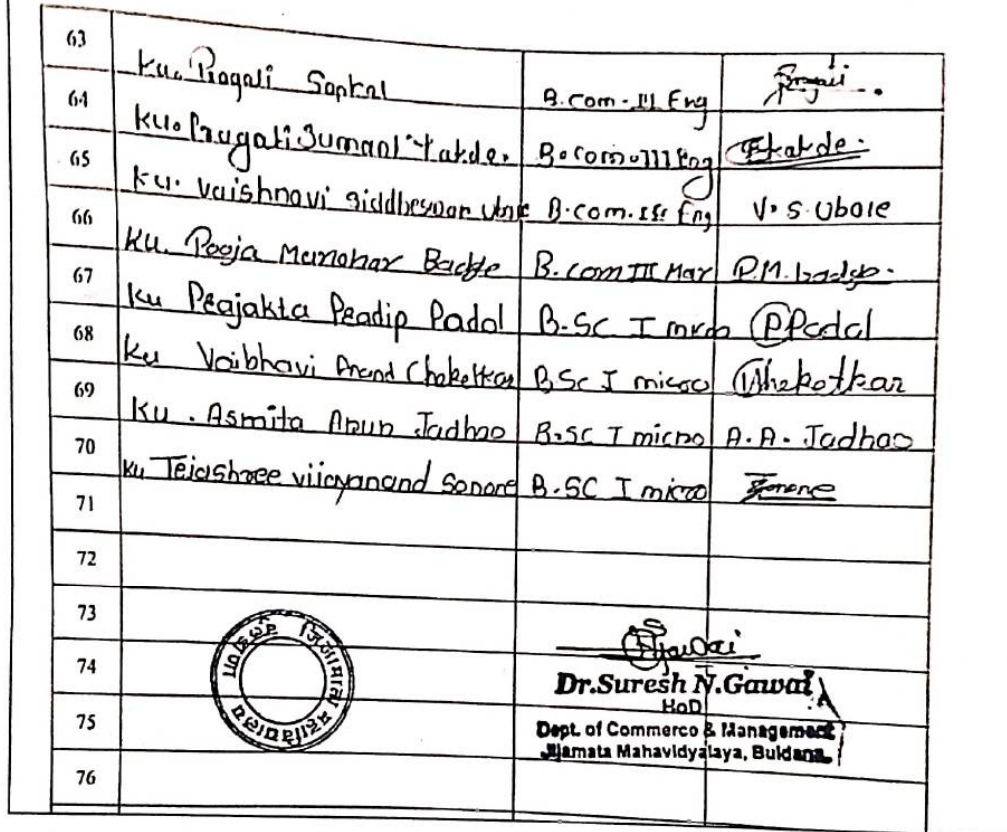 63 Ku. Pragati Sapkal B.com-III Eng Pragati
64 Ku. Pragati Sumant Tarde. B.com-III Eng
65 Ku. Vaishnavi Siddheswar Ubale B.com. Ist Eng V.S. Ubale
66 Ku. Pooja Manohar Badge B.com III Mar P.M. badge.
67 Ku Prajakta Pradip Padol B.SC I micro PPadol
68 Ku Vaibhavi Anand Chekotkar B.Sc I micro Chekotkar
69 Ku. Asmita Arun Jadhao B.SC I micro A.A. Jadhao
70 Ku Tejashree vijayanand Sonone B.SC I micro Sonone
71
72
73
74
75
76
जिजामाता महाविद्यालय
Dr.Suresh N.Gawai
HoD
Dept. of Commerce & Management
Jijamata Mahavidyalaya, Buldana.